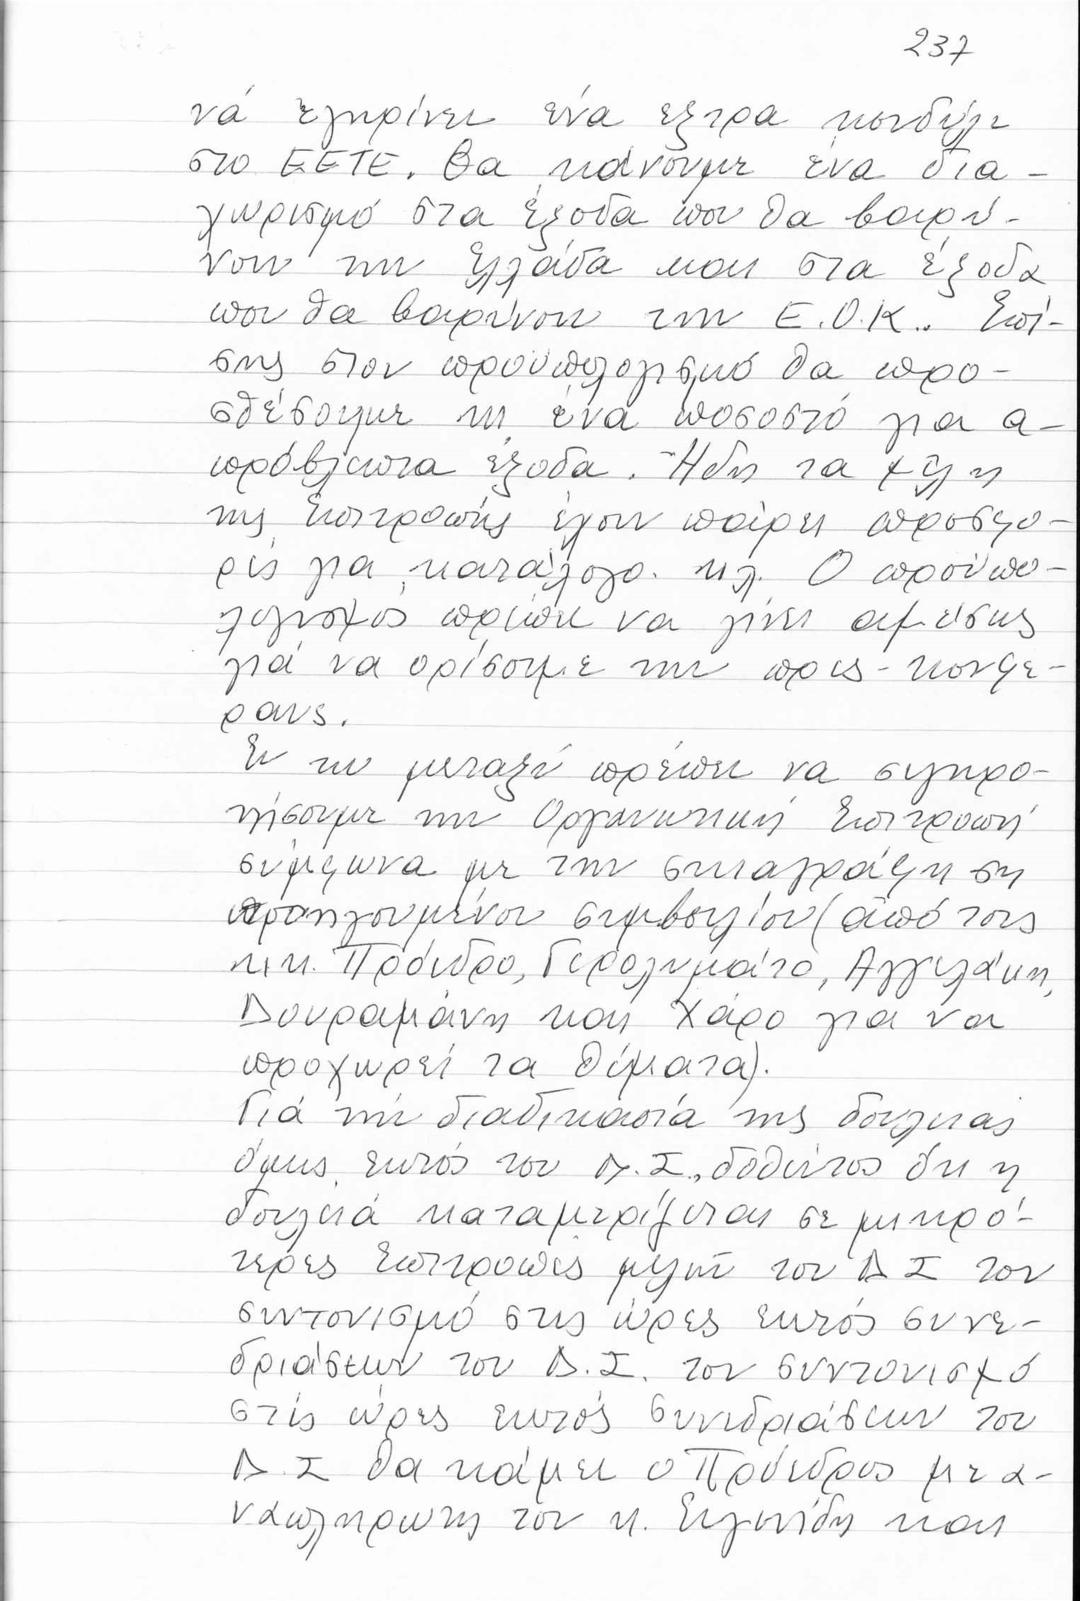 237
νά εγκρίνει ένα εξτρα κονδύλι
στο ΕΕΤΕ. Θα κάνουμε ένα δια-
χωρισμό στα έξοδα που θα βαρύ-
νουν την Ελλάδα και στα έξοδα
που θα βαρύνουν την Ε.Ο.Κ.. Επί-
σης στον προϋπολογισμό θα προ-
σθέσουμε κι ένα ποσοστό για α-
πρόβλεπτα έξοδα. Ήδη τα μέλη
της Επιτροπής έχουν πάρει προσφο-
ρές για κατάλογο κλ. Ο προϋπο-
λογισμός πρέπει να γίνει αμέσως
γιά να ορίσουμε την πρες-κονφε-
ρανς.
Εν τω μεταξύ πρέπει να συγκρο-
τήσουμε την Οργανωτική Επιτροπή
σύμφωνα με την σκιαγράφηση
προηγουμένου συμβουλίου (από τους
κ.κ. Πρόεδρο, Γερολυμάτο, Αγγελάκη,
Δουραμάνη και Χάρο για να
προχωρεί τα θέματα).
Γιά τήν διαδικασία της δουλειάς
όμως εκτός του Δ.Σ., δοθέντος ότι η
δουλειά καταμερίζεται σε μικρό-
τερες Επιτροπές μελών του Δ Σ τον
συντονισμό στις ώρες εκτός συνε-
δριάσεων του Δ.Σ. τον συντονισμό
στίς ώρες εκτός συνεδριάσεων του
Δ.Σ θα κάμει ο Πρόεδρος με α-
ναπληρωτή τον κ. και